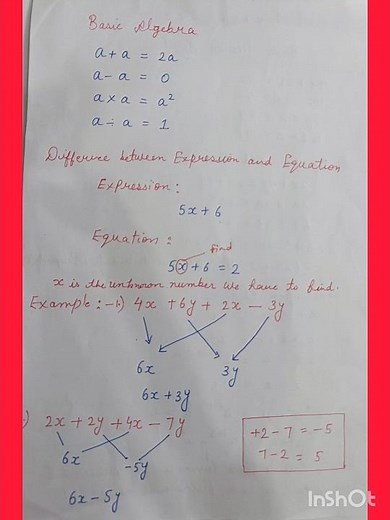 Basic Algebra
a + a = 2a
a - a = 0
a × a = a²
a ÷ a = 1
Difference between Expression and Equation
Expression :
5x + 6
Equation :
Find
5x + 6 = 2
x is the unknown number we have to find.
Example : -1) 4x + 6y + 2x - 3y
6x 3y
6x + 3y
) 2x + 2y + 4x - 7y
6x -5y
6x - 5y
+2 - 7 = -5
7 - 2 = 5
InShOt